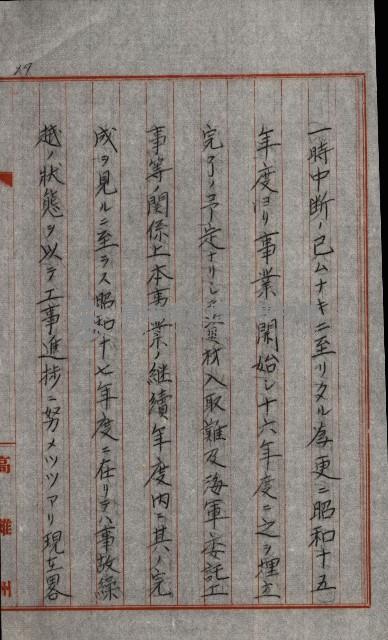 一時中断ノ已ムナキニ至リタル為更ニ昭和十五
年度ヨリ事業ヲ開始シ十六年度ニ之ヲ埋立
完了ノ予定ナリシモ資材入取難及海軍ノ委託工
事等ノ関係上本事業ノ継続年度内ニ其ノ完
成ヲ見ルニ至ラス昭和十七年度ニ在リテハ事故繰
越ノ状態ヲ以テ工事進捗ニ努メツツアリ現在畧
高雄州